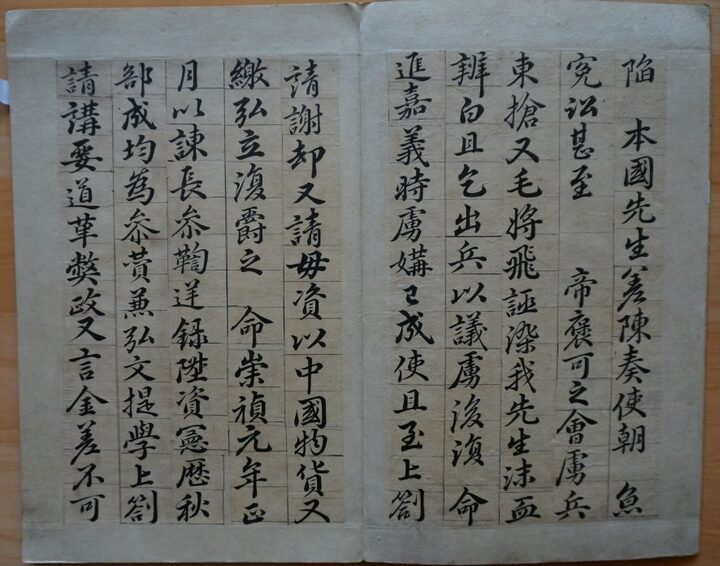 陷　本國先生差陳奏使朝
冤訟甚至　帝褒可之會虜兵
東搶又毛將飛誣染我先生沫血
辨白且乞出兵以議虜後復　命
進嘉義時虜媾已成使且至上劄
請謝却又請毋資以中國物貨又
繳弘立復爵之　命崇禎元年正
月以諫長參鞫逆錄陞資憲歷秋
部成均為參贊兼弘文提學上劄
請講要道革弊政又言金差不可